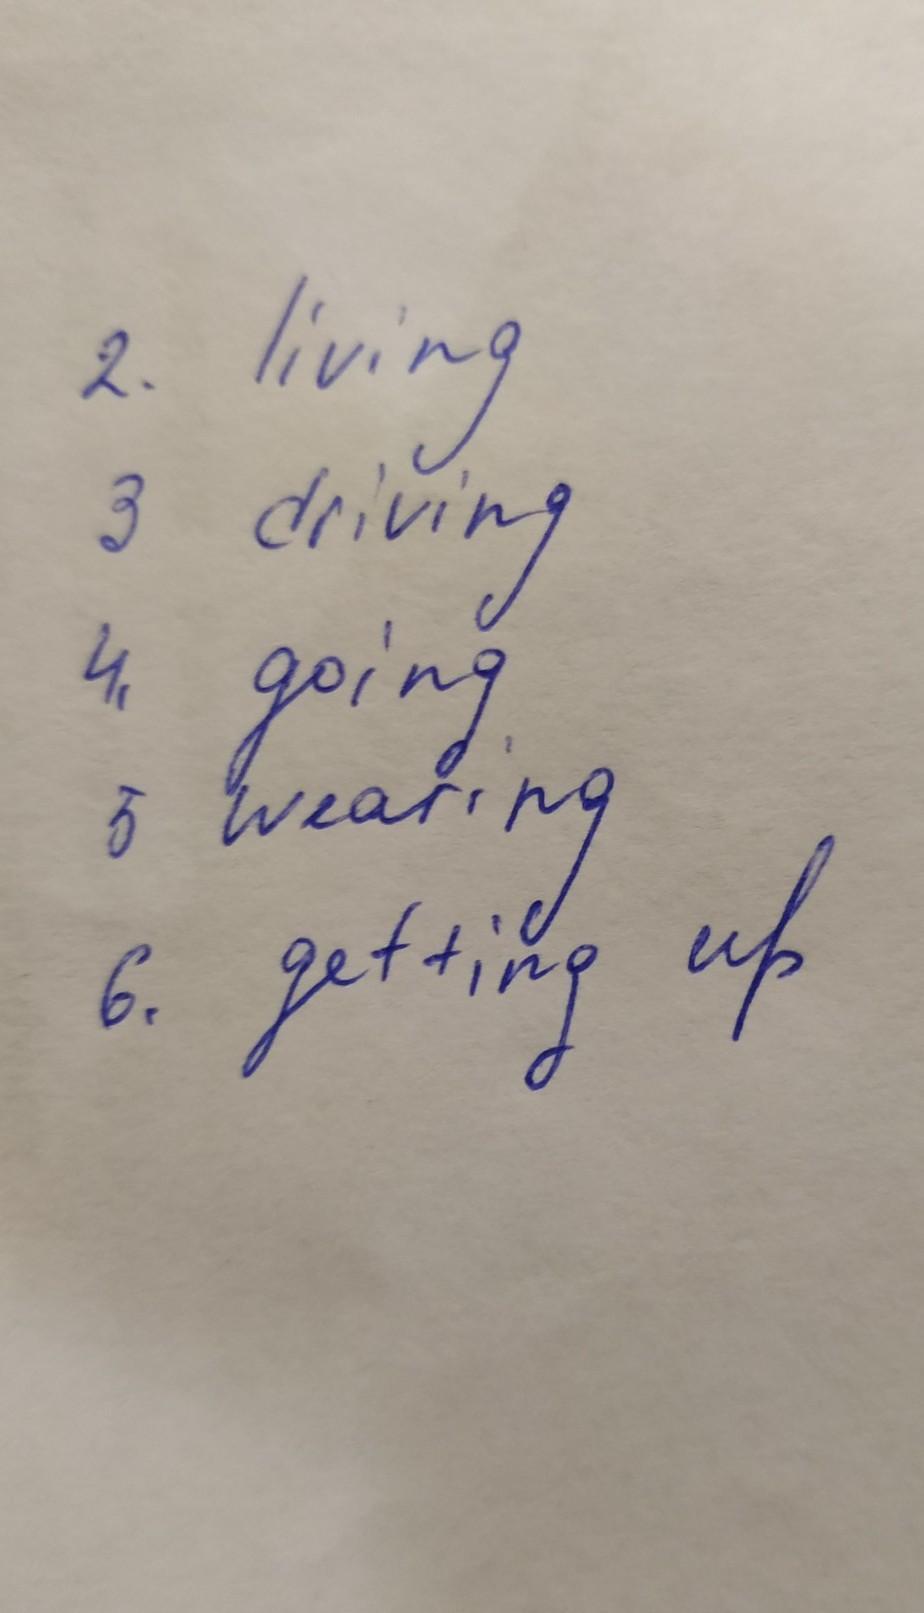 2. living
3 driving
4. going
5 wearing
6. getting up